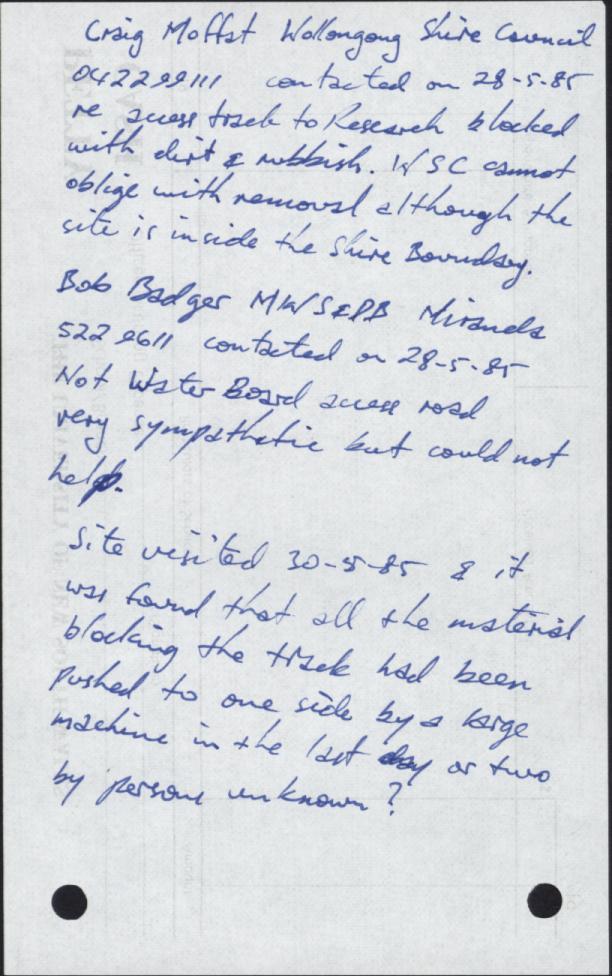 Craig Moffat Wollongong Shire Council
042299111 contacted on 28-5-85
re access track to Research blocked
with dirt & rubbish. WSC cannot
oblige with removal although the
site is inside the Shire Boundary.
Bob Badger MWS&DB Miranda
522 9611 contacted on 28-5-85
Not Water Board access road
very sympathetic but could not
help.
Site visited 30-5-85 & it
was found that all the material
blocking the track had been
pushed to one side by a large
machine in the last day or two
by persons unknown?